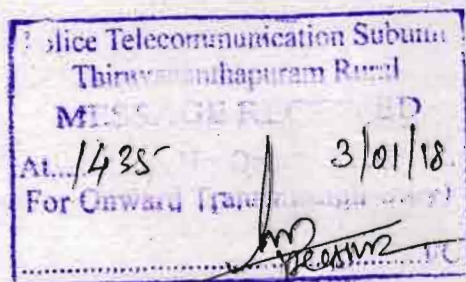 Police Telecommunication Subunit
Thiruvananthapuram Rural
MESSAGE RECEIVED
At...1435 3/01/18
For Onward
PC